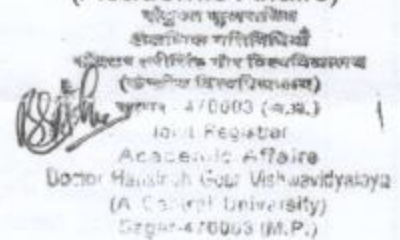 (Academic Affairs)
संयुक्त कुलसचिव
शैक्षणिक गतिविधियाँ
डॉक्टर हरीसिंह गौर विश्वविद्यालय
(केन्द्रीय विश्वविद्यालय)
सागर - 470003 (म.प्र.)
Joint Registrar
Academic Affairs
Doctor Harisingh Gour Vishwavidyalaya
(A Central University)
Sagar-470003 (M.P.)